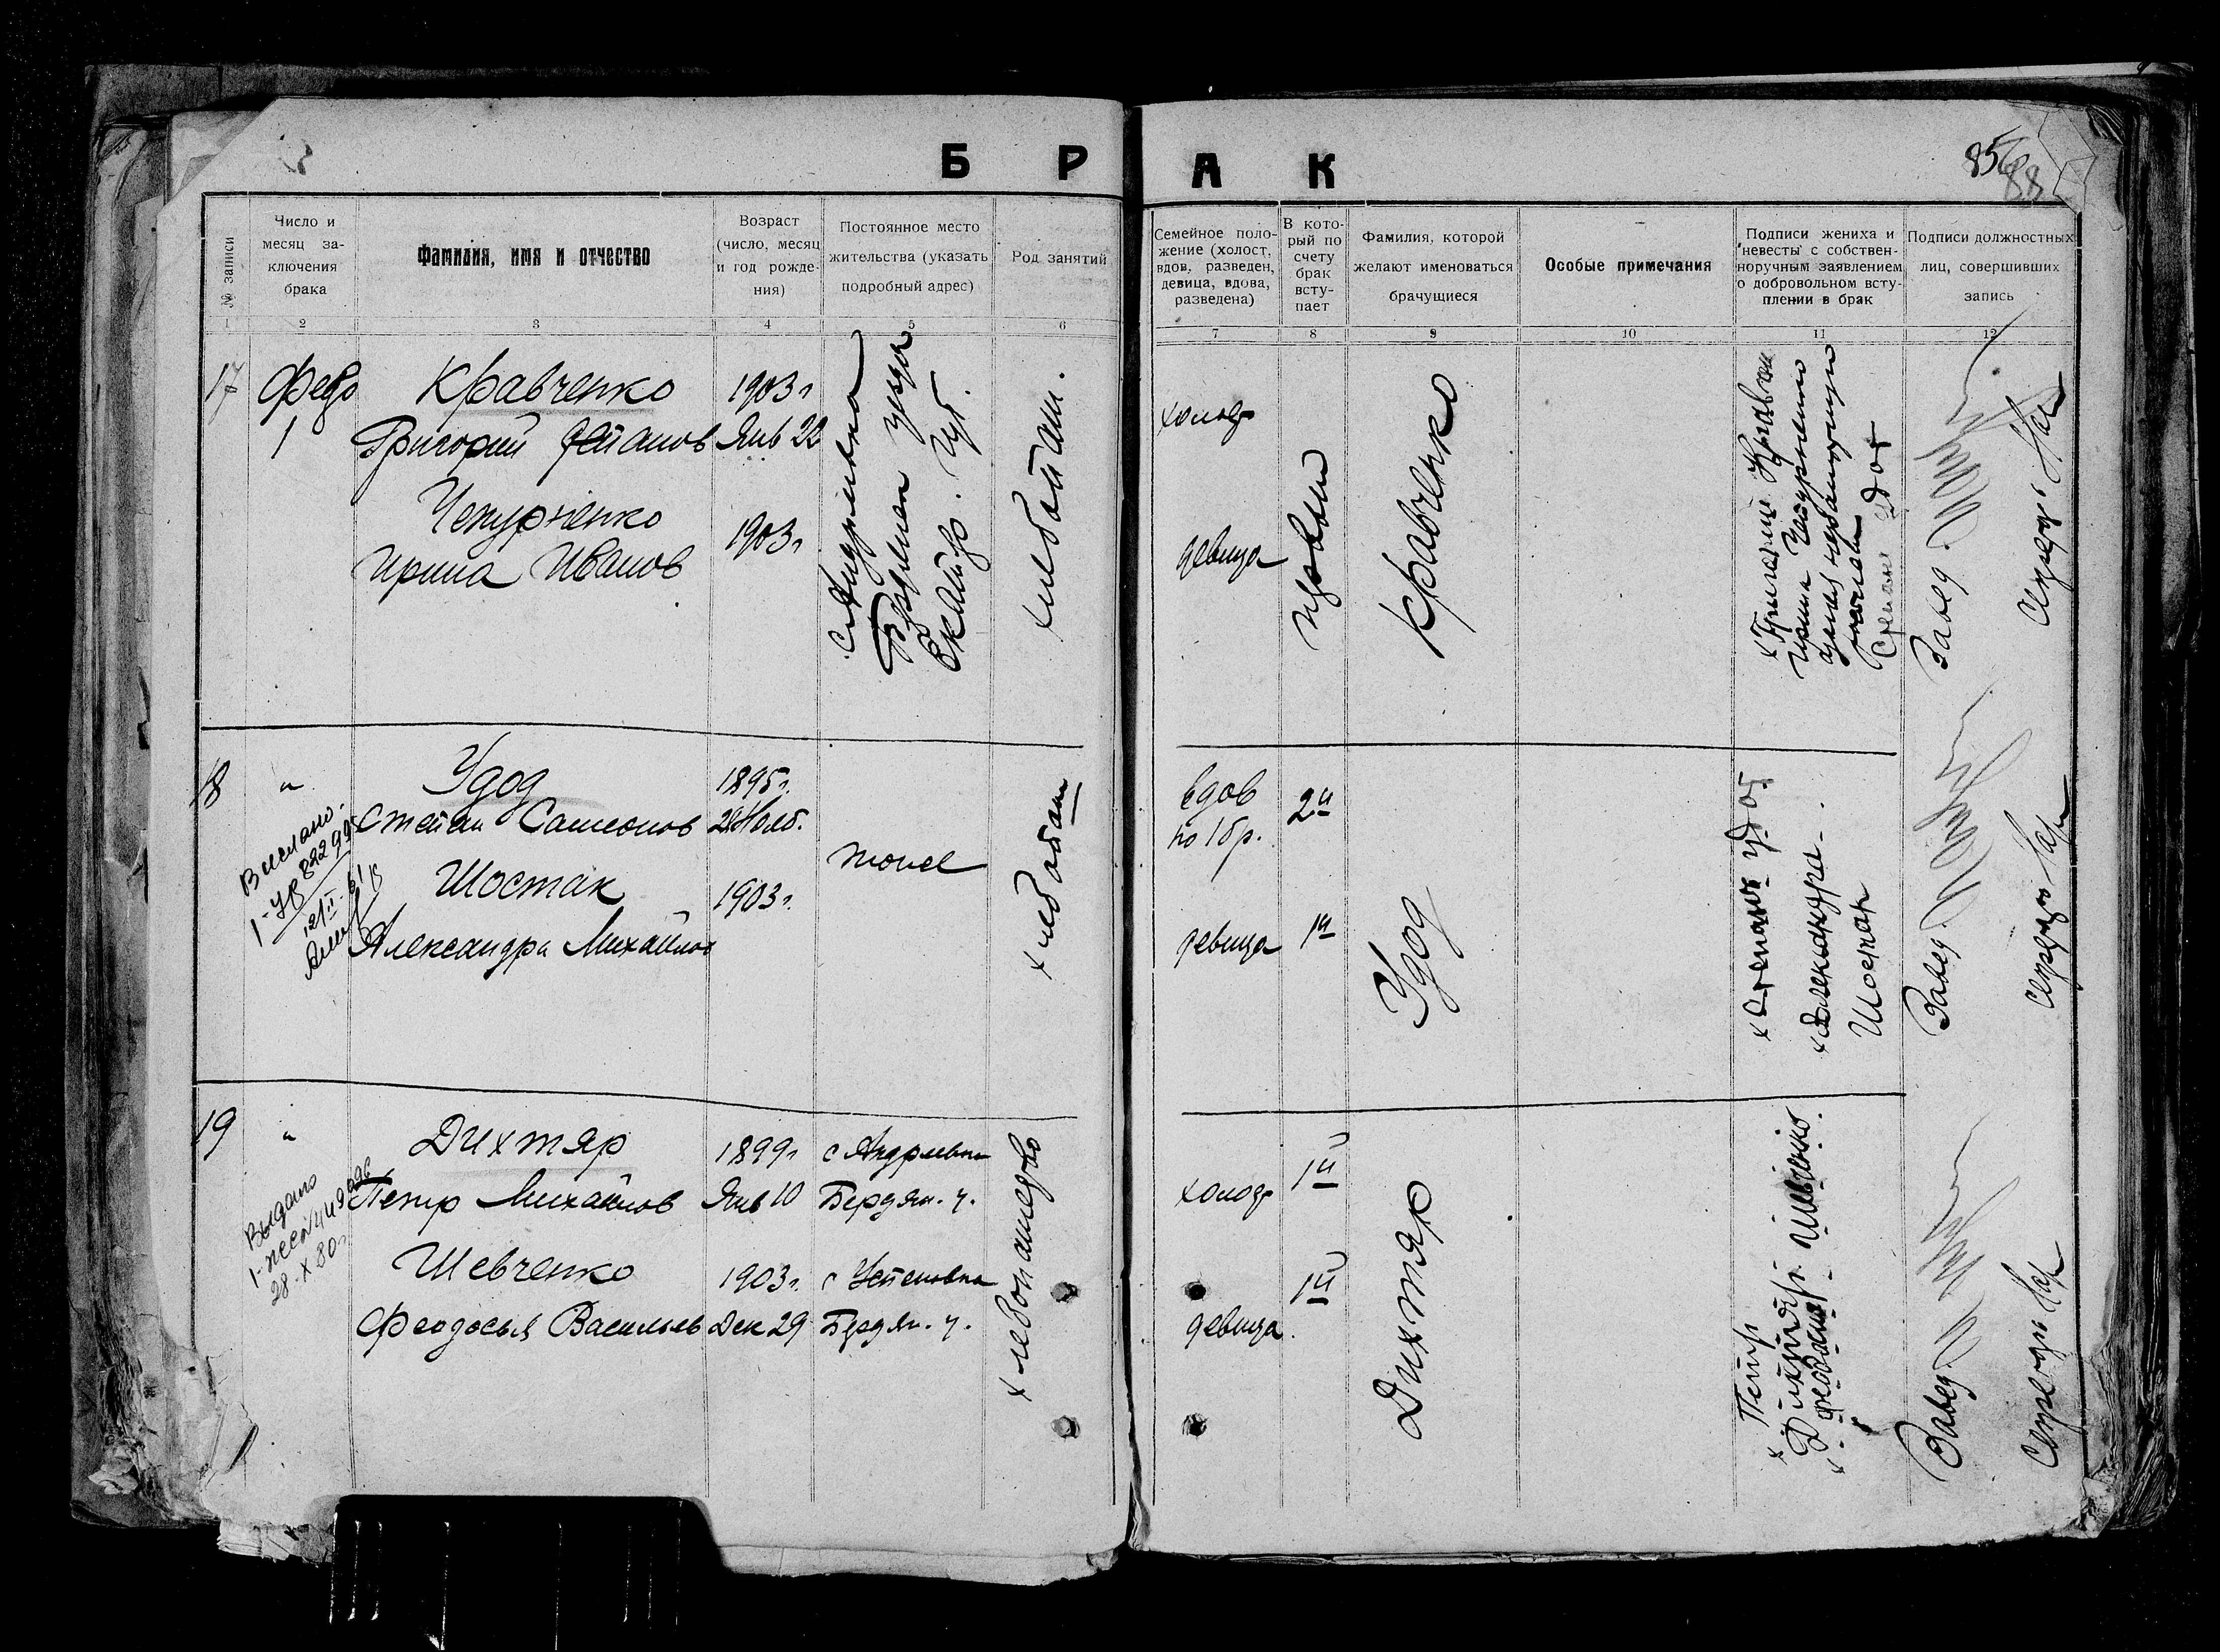 Б Р А К
85
88
№ записи
Число и
месяц за-
ключения
брака
Фамилия, имя и отчество
Возраст
(число, месяц
и год рожде-
ния)
Постоянное место
жительства (указать
подробный адрес)
Род занятий
Семейное поло-
жение (холост,
вдов, разведен,
девица, вдова,
разведена)
В кото-
рый по
счету
брак
всту-
пает
Фамилия, которой
желают именоваться
брачущиеся
Особые примечания
Подписи жениха и
невесты с собствен-
норучным заявлением
о добровольном всту-
плении в брак
Подписи должностных
лиц, совершивших
запись
1 2 3 4 5 6 7 8 9 10 11 12
17
Февр
1
Кравченко
Григорий Степанов
1903г
Янв 22
Чепурненко
Ирина Иванов
1903г
с. Андреевка
Бердянск уезда
Екатер. губ.
хлебопаш.
холост
девица
первый
Кравченко
х Григорий Кравчен
Ирина Чепурненко
неграмотную
расписался
Степан Удот
Завед.
Секретарь
18
"
Выслано
12/II-61
Удод
Степан Самсонов
1895г.
29 Нояб.
Шостак
Александра Михайлов
1903г.
тоже
хлебопаш
вдов
по 1 бр.
2й
девица
1й
Удод
х Степан Удот
х Александра
Шостак
Завед.
Секретарь
19
"
Выдано
28-X 80г
Дихтяр
Петр Михайлов
1899г
Янв 10
с Андреевки
Бердян. у.
Шевченко
Феодосья Васильев
1903г.
Дек 29
с Успеновка
Бердян. у.
хлебопашество
холост
1й
девица.
1й
Дихтяр
х Петр
Дихтяр
х Феодосия Шевченко.
Завед.
Секретарь